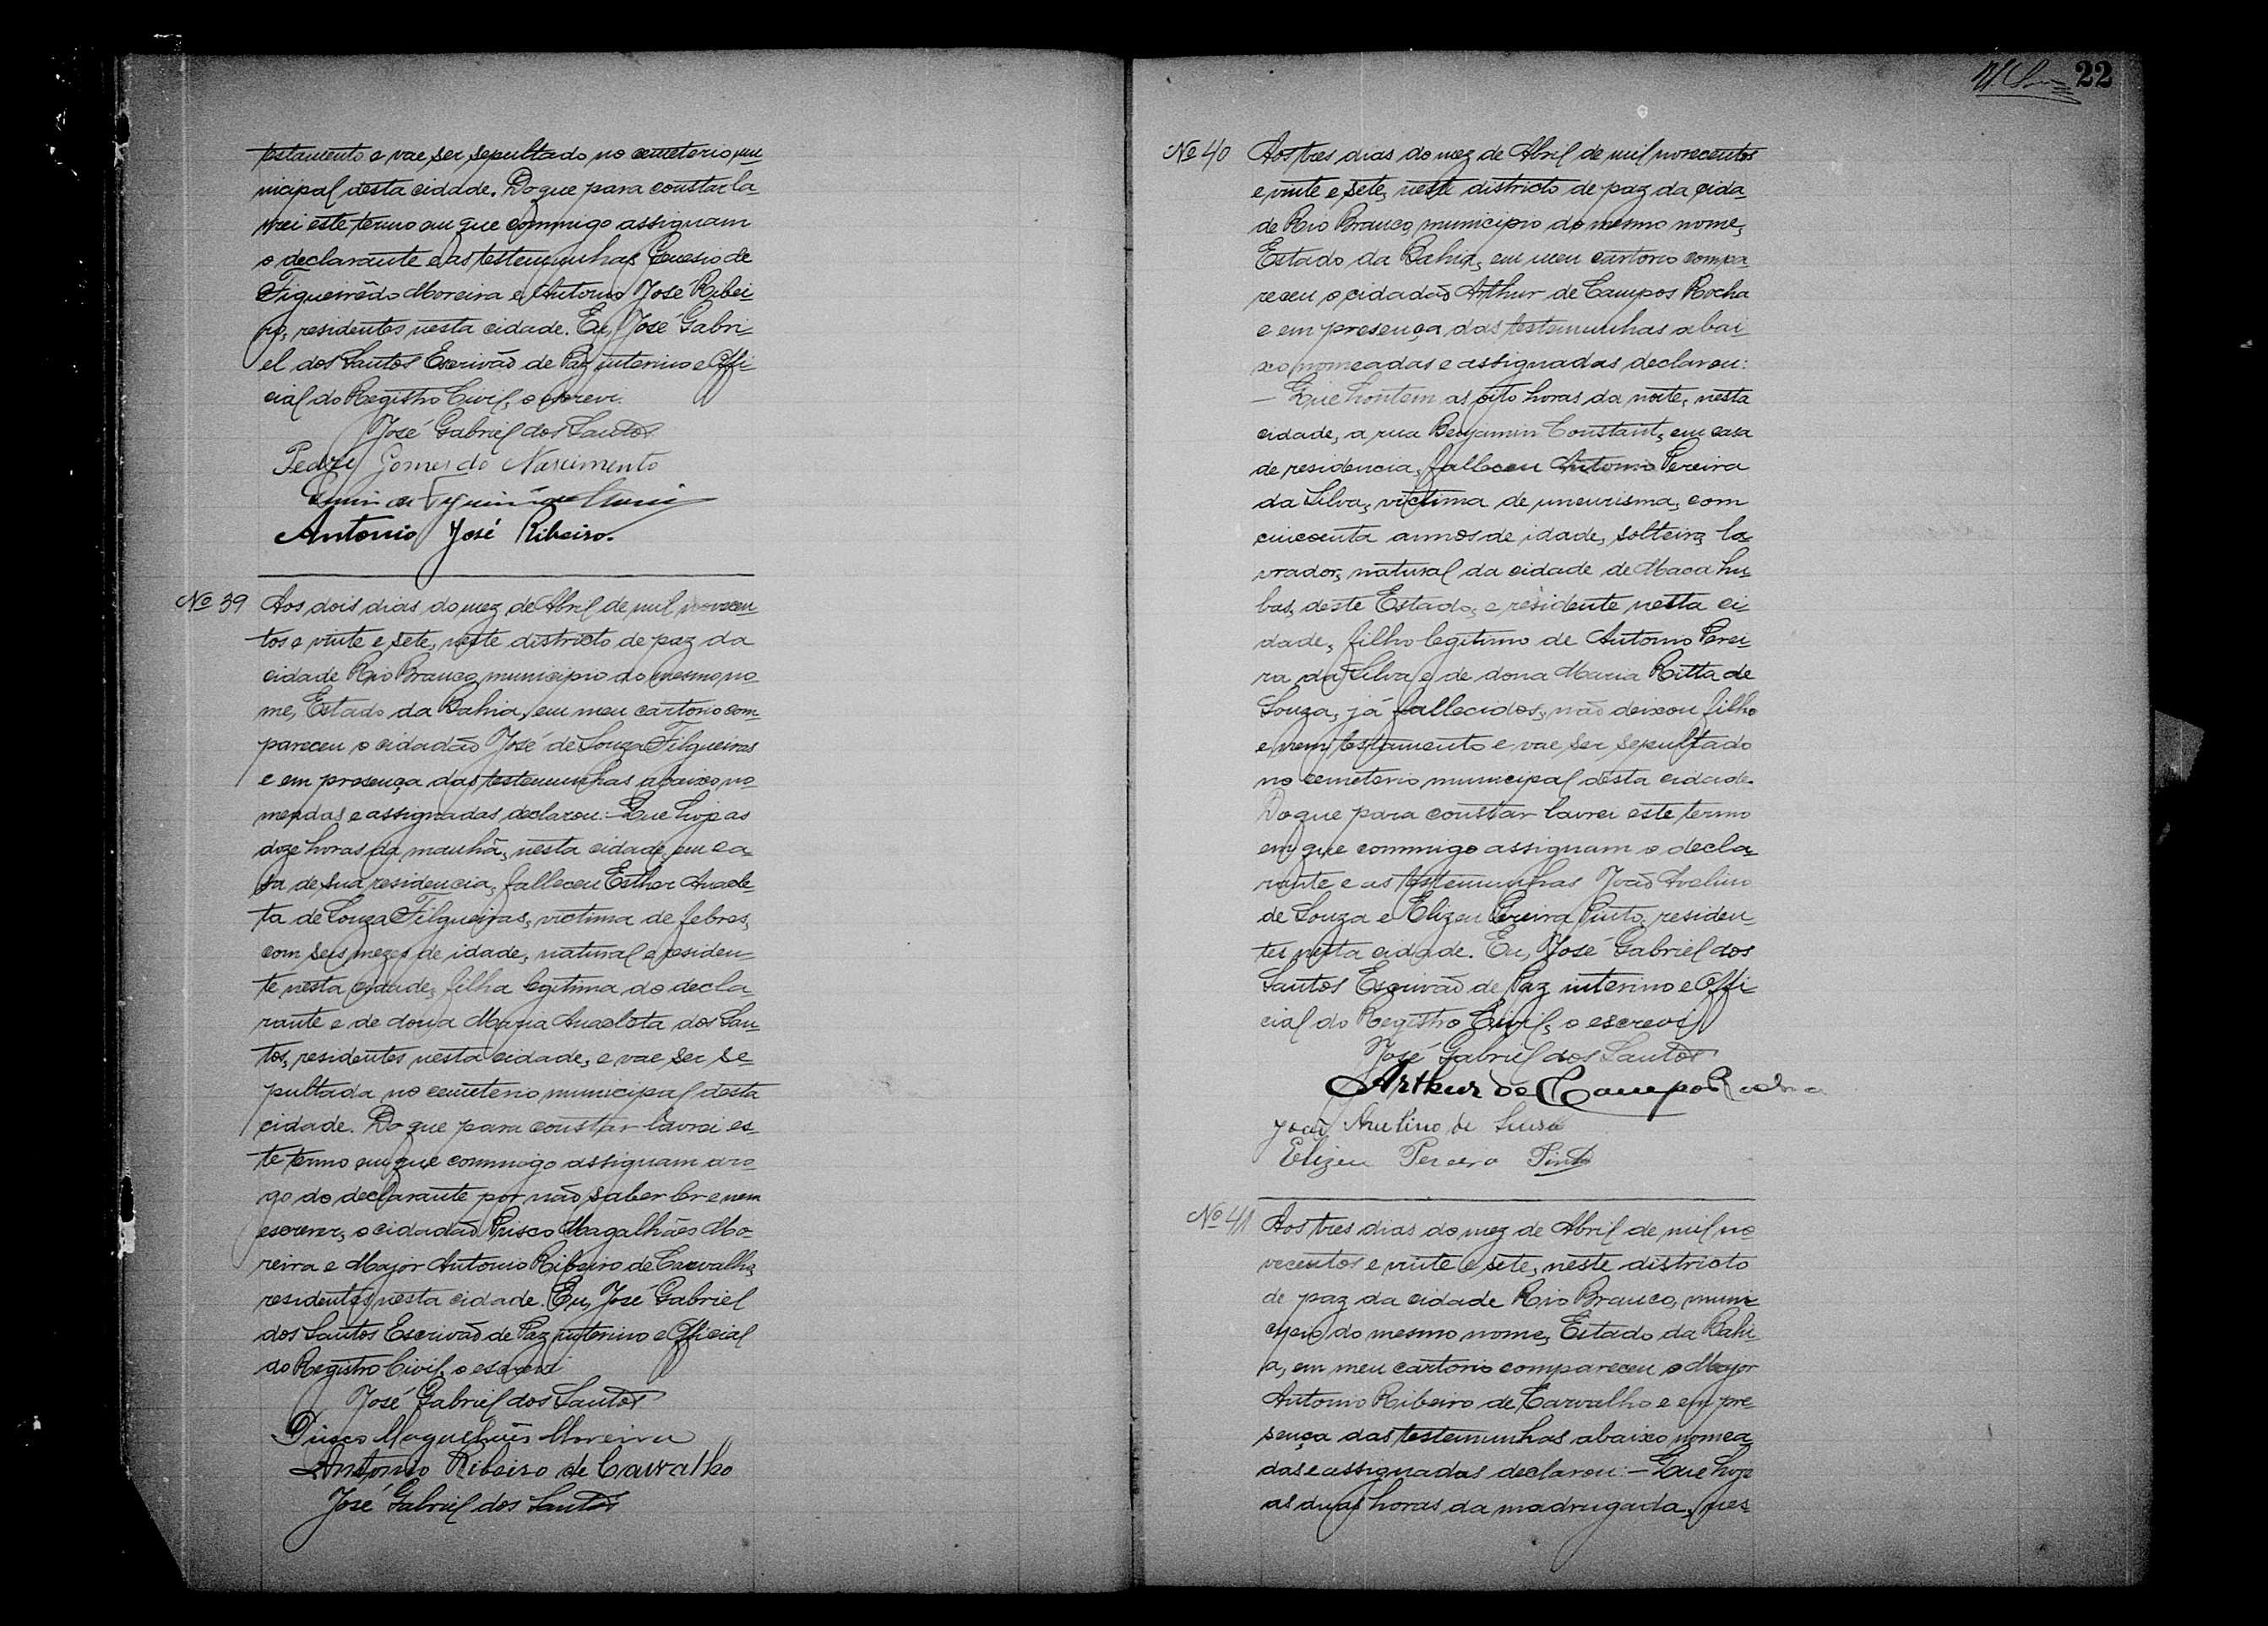 testamento e vae ser sepultado no cemeterio mu
nicipal desta cidade. Do que para constar la
vrei este termo em que commigo assignam
o declarante e as testemunhas Genesio de
Figueirêdo Moreira e Antonio José Ribei
ro, residentes nesta cidade. Eu, José Gabri
el dos Santos Escrivão de Paz interino e Offi
cial do Registro Civil, o escrevi.
José Gabriel dos Santos
Pedro Gomes do Nascimento
Antonio José Ribeiro.
Nº 39 Aos dois dias do mez de Abril de mil novecen
tos e vinte e sete, neste districto de paz da
cidade Rio Branco, municipio do mesmo no
me, Estado da Bahia, em meu cartorio com
pareceu o cidadão José de Souza Filgueiras
e em presença das testemunhas abaixo no
meadas e assignadas declarou: – Que hoje as
doze horas da manhã, nesta cidade, em ca
sa de sua residencia, falleceu Esther Anacle
ta de Souza Filgueiras, victima de febres,
com seis mezes de idade, natural e residen
te nesta cidade, filha legitima do decla
rante e de dona Maria Anacleta dos San
tos, residentes nesta cidade, e vae ser se
pultada no cemeterio municipal desta
cidade. Do que para constar lavrei es
te termo em que commigo assignam a ro
go do declarante por não saber ler e nem
escrever, o cidadão Prisco Magalhães Mo
reira e Major Antonio Ribeiro de Carvalho,
residentes nesta cidade. Eu, José Gabriel
dos Santos Escrivão de Paz interino e Official
do Registro Civil, o escrevi
José Gabriel dos Santos
Prisco Magalhães Moreira
Antonio Ribeiro de Carvalho
José Gabriel dos Santos
22
Nº 40 Aos tres dias do mez de Abril de mil novecentos
e vinte e sete, neste districto de paz da cida
de Rio Branco, municipio do mesmo nome,
Estado da Bahia, em meu cartorio compa
receu o cidadão Arthur de Campos Rocha
e em presença das testemunhas abai
xo nomeadas e assignadas declarou:
– Que hontem as oito horas da noite, nesta
cidade, a rua Benjamin Constant, em casa
de residencia, falleceu Antonio Pereira
da Silva, victima de uneurisma, com
cincoenta annos de idade, solteiro, la
vrador, natural da cidade de Macahu
bas, deste Estado, e residente nesta ci
dade, filho legitimo de Antonio Perei
ra da Silva e de dona Maria Ritta de
Souza, já fallecidos, não deixou filho
e nem testamento e vae ser sepultado
no cemeterio municipal desta cidade.
Do que para constar lavrei este termo
em que commigo assignam o decla
rante e as testemunhas João Avelino
de Souza e Elizeu Pereira Pinto, residen
tes nesta cidade. Eu, José Gabriel dos
Santos Escrivão de Paz interino e Offi
cial do Registro Civil, o escrevi
José Gabriel dos Santos
Arthur de Campos Rocha
João Avelino de Sousa
Elizeu Pereira Pinto
Nº 41 Aos tres dias do mez de Abril de mil no
vecentos e vinte e sete, neste districto
de paz da cidade Rio Branco, muni
cipio do mesmo nome, Estado da Bahi
a, em meu cartorio compareceu o Major
Antonio Ribeiro de Carvalho e em pre
sença das testemunhas abaixo nomea
das e assignadas declarou: – Que hoje
as duas horas da madrugada, nes